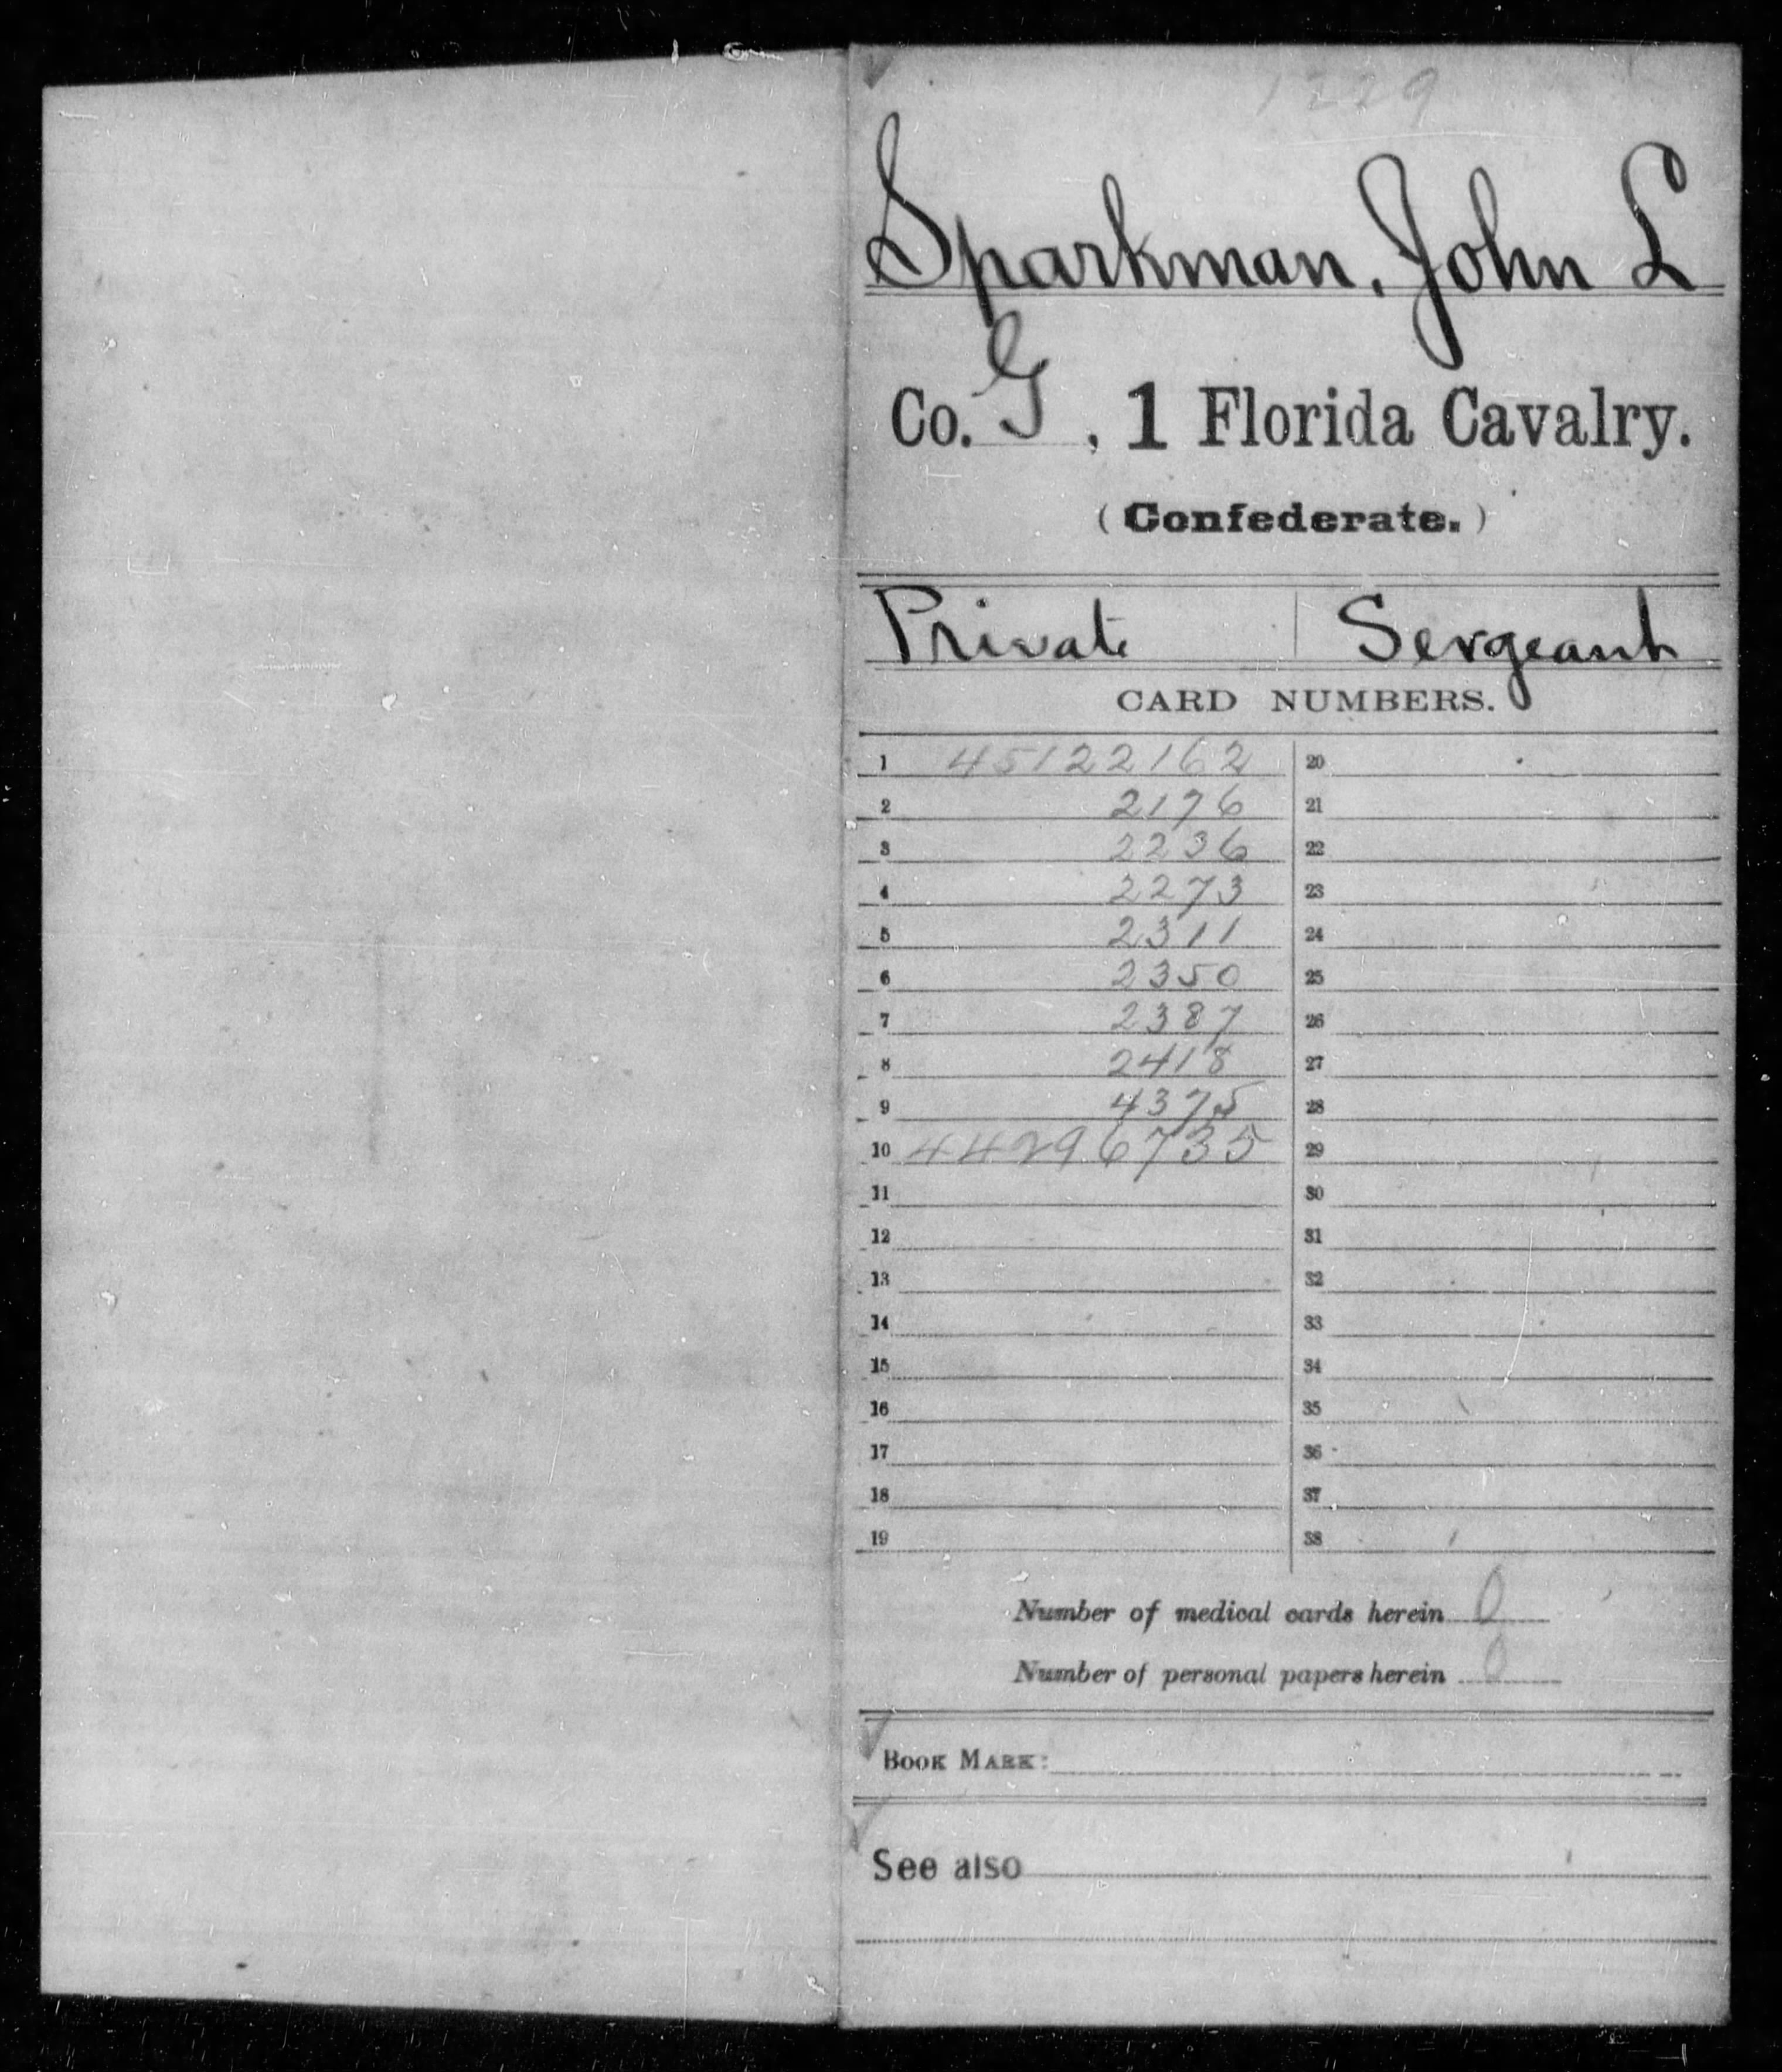 1229
Sparkman, John L
Co. G, 1 Florida Cavalry.
(Confederate.)
Private | Sergeant
CARD NUMBERS.
1 45122162 20
2 2176 21
3 2236 22
4 2273 23
5 2311 24
6 2350 25
7 2387 26
8 2418 27
9 4375 28
10 44296735 29
11 30
12 31
13 32
14 33
15 34
16 35
17 36
18 37
19 38
Number of medical cards herein 0
Number of personal papers herein 0
BOOK MARK:
See also